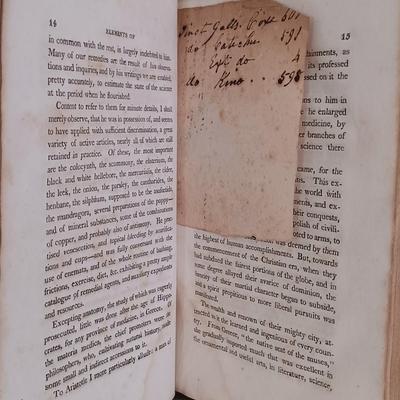 14
ELEMENTS OF
in common with the rest, is largely indebted to him.
Many of our remedies are the result of his observa-
tions and inquiries, and by his writings we are enabled,
pretty accurately, to estimate the state of the science
at the period when he flourished.
Content to refer to them for minute details, I shall
merely observe, that he was in possession of, and seems
to have applied with sufficient discrimination, a great
variety of active articles, nearly all of which are still
retained in practice. Of these, the most important
are the colocynth, the scammony, the elaterium, the
black and white hellebore, the mercurialis, the cider,
the leek, the onion, the parsley, the cantharides, the
henbane, the silphium, supposed to be the asafœtida,
the mandragora, several preparations of the poppy
and of mineral substances, some of the combinations
of copper, and probably also of antimony. He prac-
tised venesection, and topical bleeding by scarifica-
tions and cups—and was fully conversant with the
use of enemata, and of the whole routine of bathing,
frictions, exercise, diet, &c. exhibiting a pretty ample
catalogue of remedial agents, and auxiliary expedients
and resources.
Excepting anatomy, the study of which was eagerly
prosecuted, little was done after the age of Hippo-
crates, for any province of medicine, in Greece. Of
the materia medica, the chief promoters were the
philosophers, who, cultivating natural history, made
some small and indirect accessions to it.
To Aristotle I more particularly allude: a man of
Tinct Galls. Cort 500
do Catechu. 591
do do 4
do Kino .. 595
15
tainments, as
its professed
ssed on it the
ions to him in
he enlarged
medicine, by
her branches of
science there
came, for the
the world with
This ex-
ments, and ex-
their conquests,
polish of civili-
voted to arms, to
was deemed by them
the highest of human accomplishments. But, towards
the commencement of the Christian era, when they
had subdued the fairest portions of the globe, and in
some degree allayed their avarice of dominion, the
ferocity of their martial character began to subside,
and a spirit propitious to more liberal pursuits was
manifested.
The wealth and renown of their mighty city, at-
tracted to it the learned and ingenious of every coun-
try. From Greece, "the native seat of the muses,"
she gradually imported much that was excellent in
the ornamental and useful arts, in literature, science,